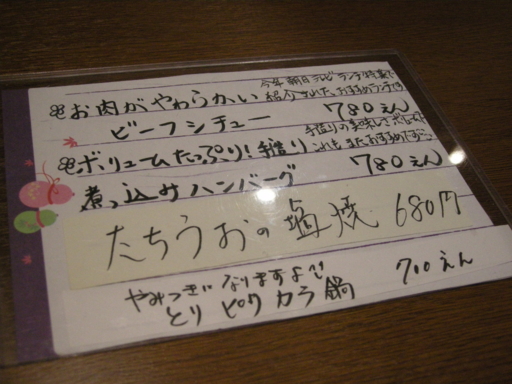 今年朝日テレビランチ特集で
紹介された、おすすめランチです
お肉がやわらかい
ビーフシチュー 780えん
手造りの美味しさ
これもまたおすすめです
ボリュームたっぷり!手造り
煮込みハンバーグ 780えん
たちうおの塩焼 680円
やみつきになりますよ
とりピリカラ鍋 700えん